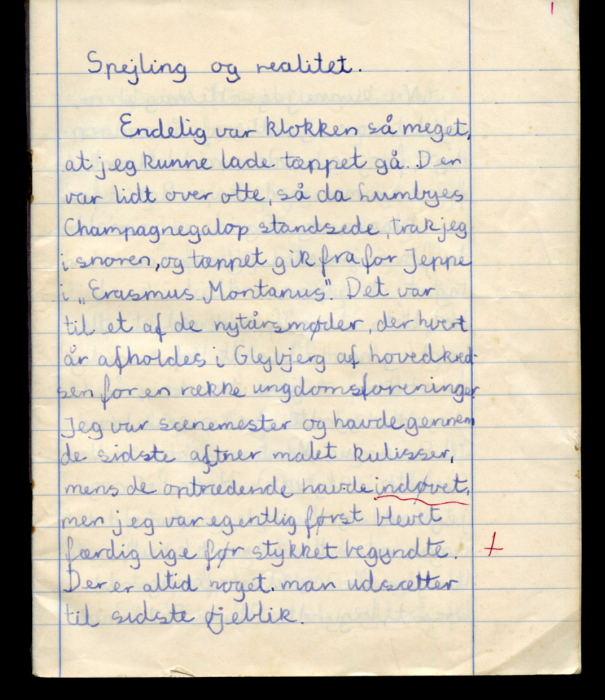 Spejling og realitet.
Endelig var klokken så meget,
at jeg kunne lade tæppet gå. Den
var lidt over otte, så da Lumbyes
Champagnegalop standsede, trak jeg
i snoren, og tæppet gik fra for Jeppe
i „Erasmus Montanus". Det var
til et af de nytårsmøder, der hvert
år afholdes i Glejbjerg af hovedkred-
sen for en række ungdomsforeninger.
Jeg var scenemester og havde gennem
de sidste aftner malet kulisser,
mens de optrædende havde indøvet,
men jeg var egentlig først blevet
færdig lige før stykket begyndte.
Der er altid noget, man udsætter
til sidste øjeblik.